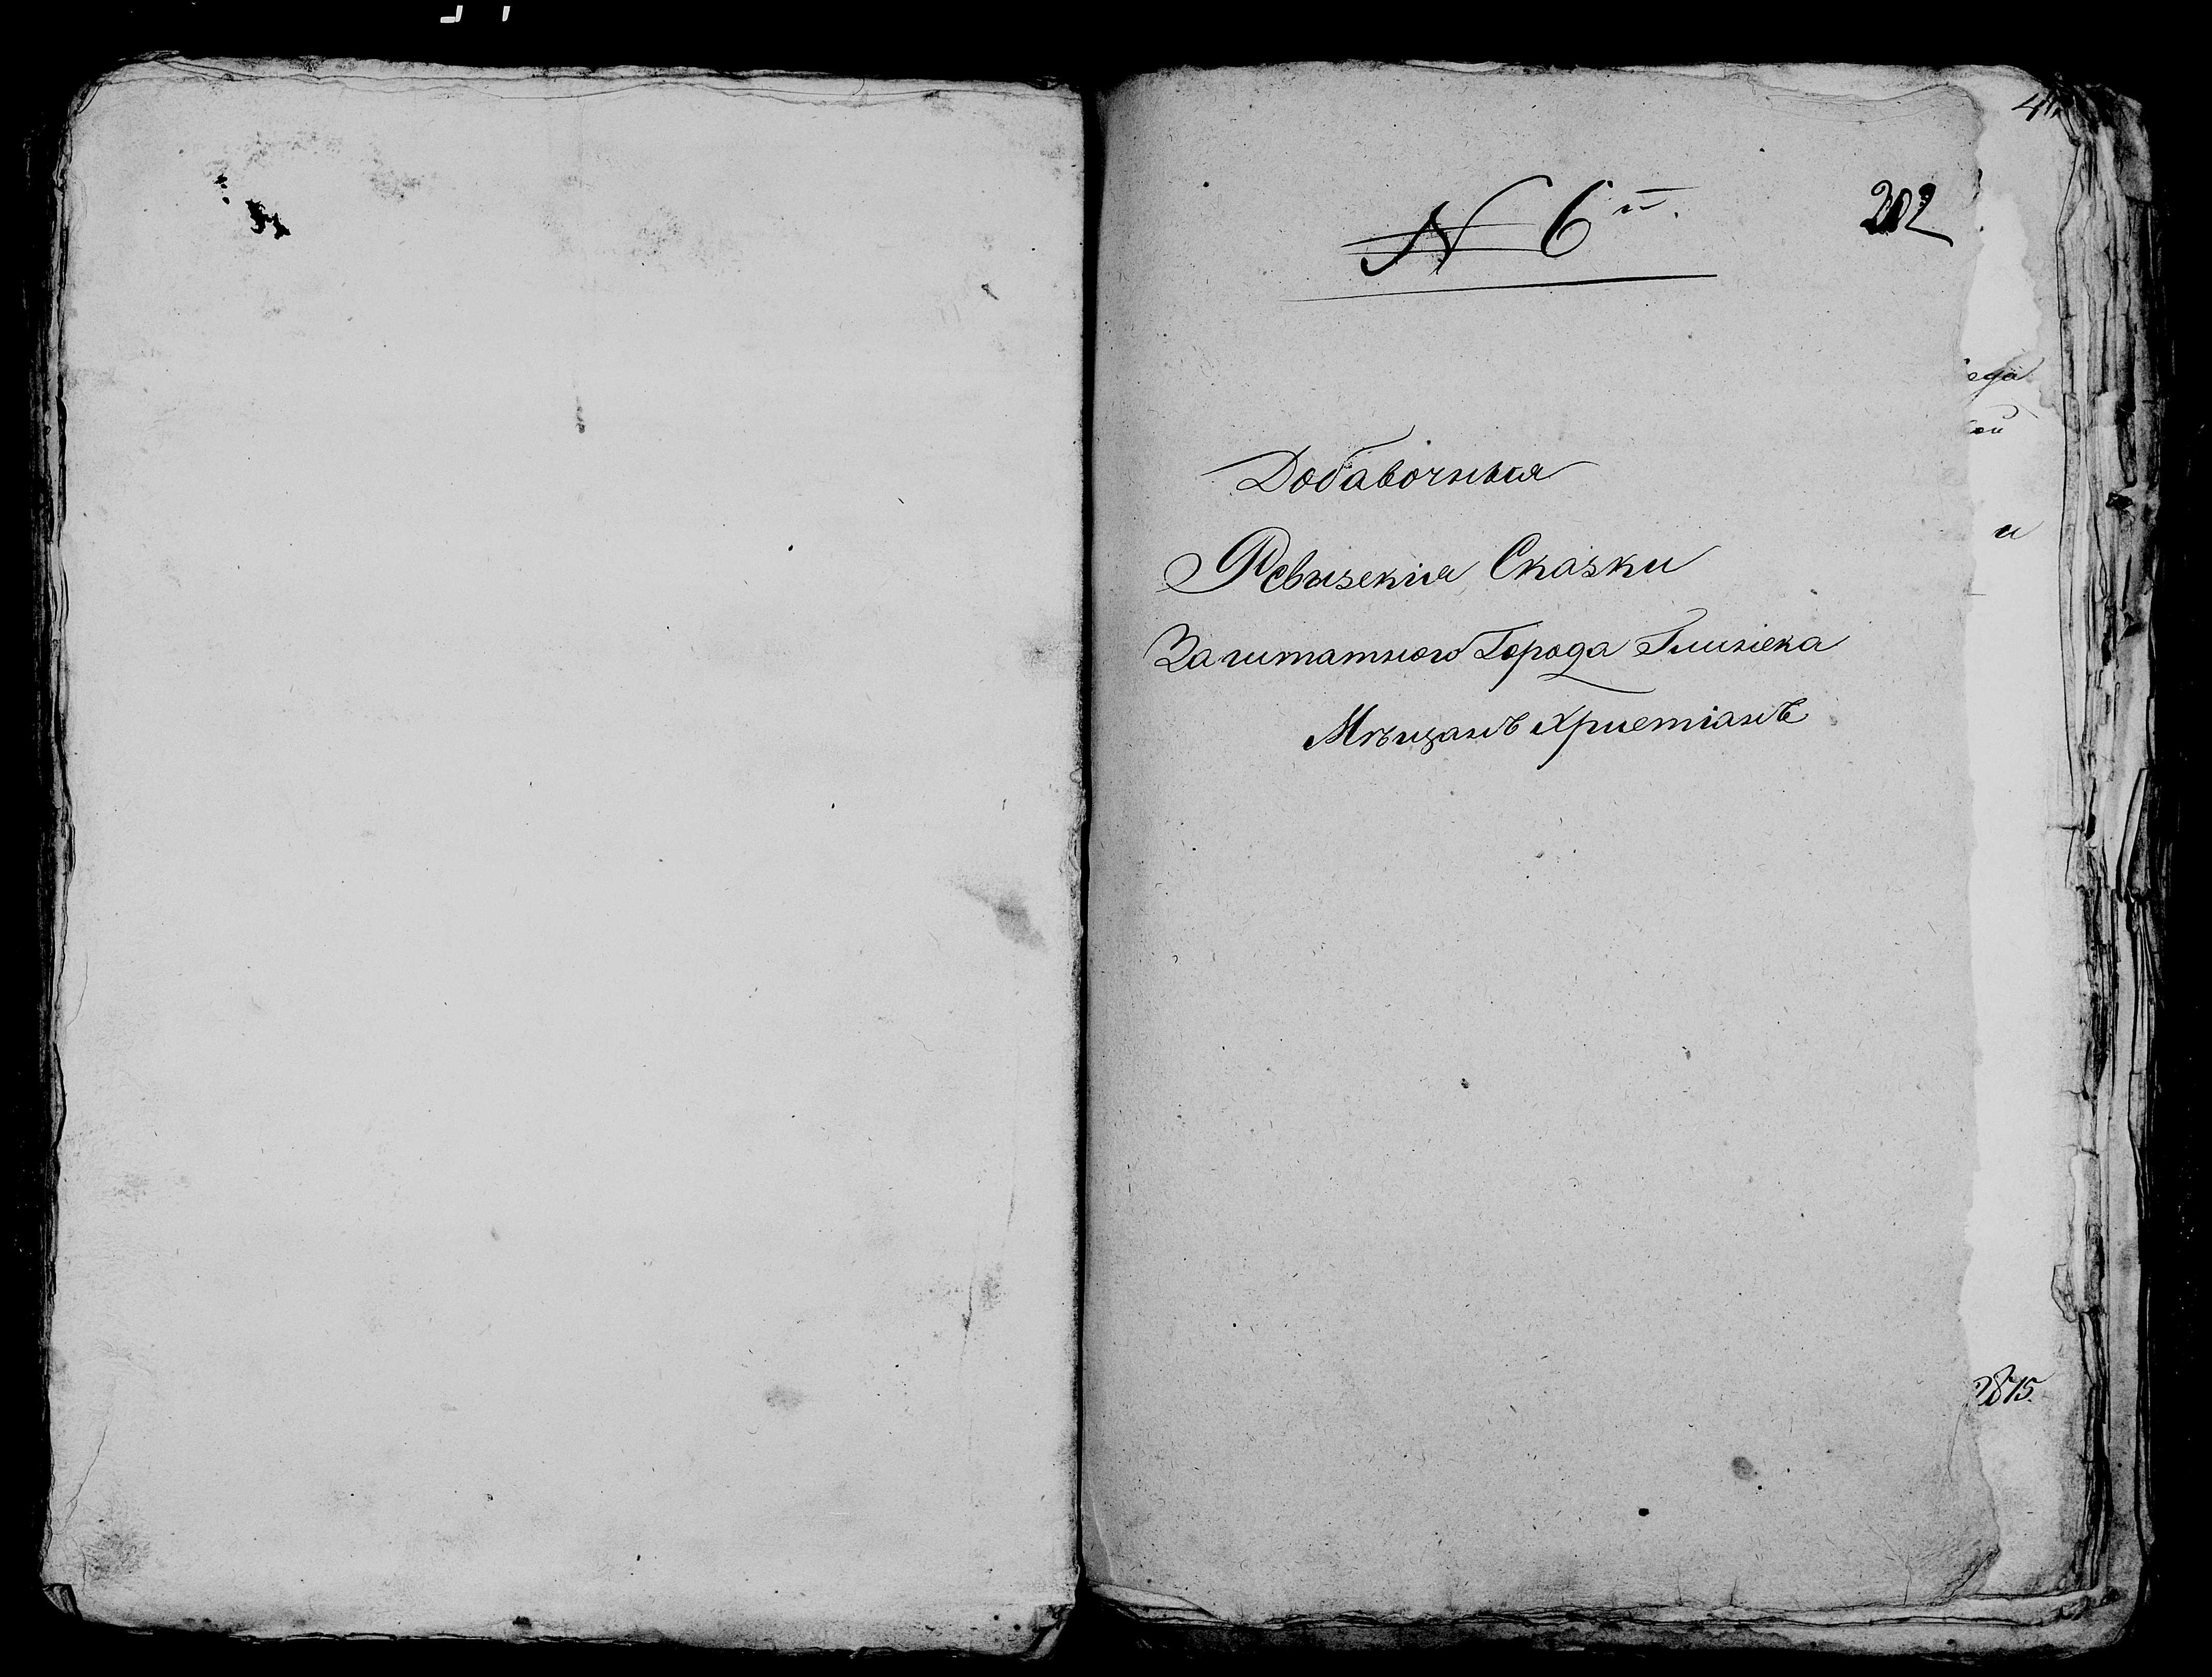 № 6й.
202
Добавочныя
Ревизскія Сказки
Заштатного Города Глинска
Мѣщанъ Христіанъ
и
2875.